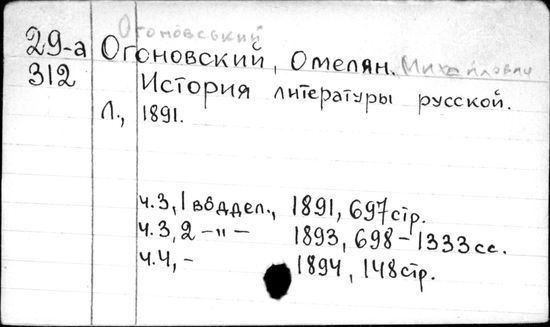 Огоновський
29-а Огоновский, Омелян. Михайлович
312 История литературы русской.
Л., 1891.
ч.3, 1 вôддел., 1891, 697стр.
ч.3, 2 -"- 1893, 698-1333сс.
ч.4, - 1894, 148стр.